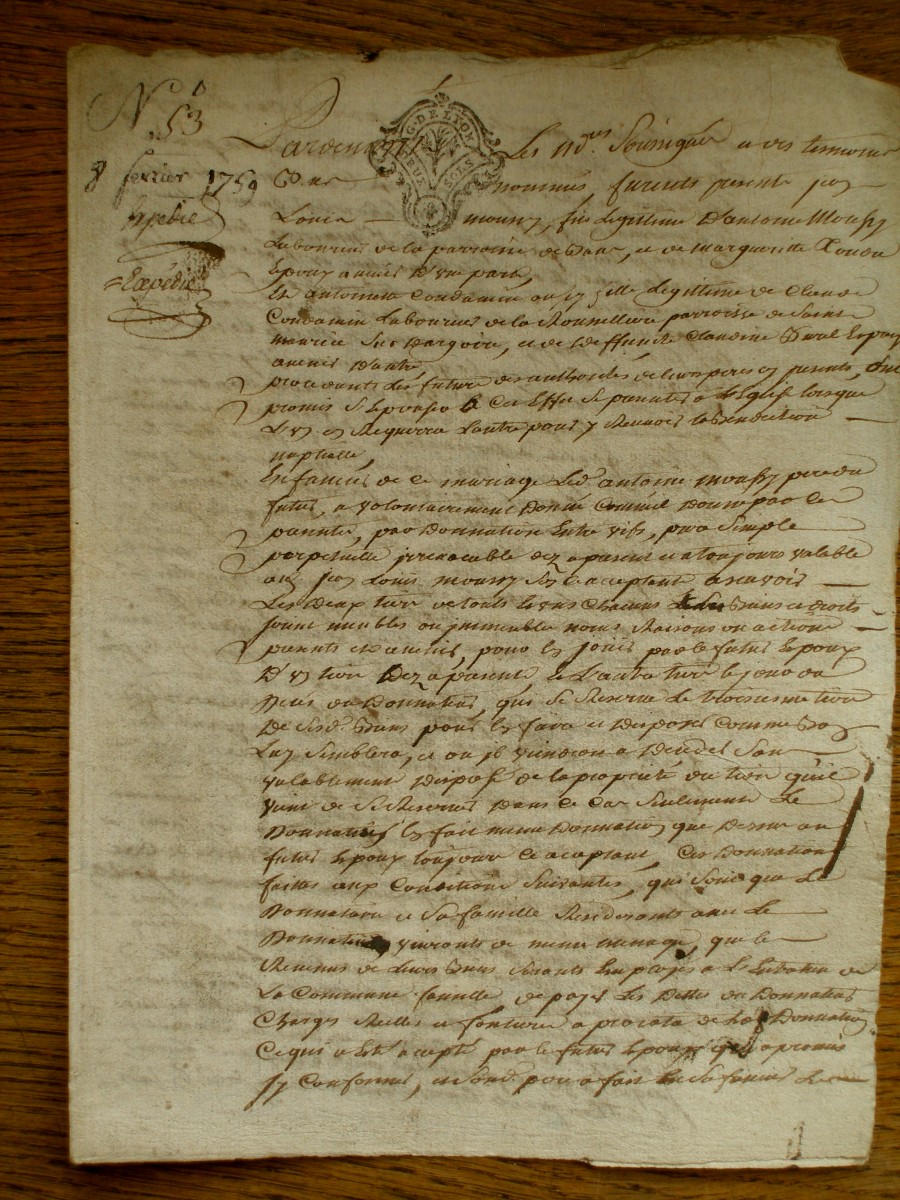 N° 53
8 février 1759
Expedié
Expédié
G. DE LYON
DEUX SOLS
Pardevant Les nores Soussignés et les temoins
nommés, furents presents jean
Louis moussy, fils Legittime d'antoine Moussy
Laboureur de la parroisse de et de marguerite
Epoux aniers d'une part,
Et antoinette Condamin aussy fille Legittime de Claude
Condamin Laboureur de la Roussilliere parroisse de Saint
maurice Sur Dargoire, et de Deffuncte Claudine
aniers d'autre,
procedants Les futurs des authorités de leurs peres et parents, ont
promis S'Epouser & a Cet Effet Se presenter a L'Eglise lorsque
L'un En Requerra L'autre pour y Recevoir la Benediction
nuptialle,
En faveur de Ce mariage Led. antoine moussy pere du
futur, a volontairement Donné Comme il Donne par Ces
presentes, par Donnation Entre vifs, pure Simple
perpetuelle irrevocable dez a present et a toujours valable
au jean Louis moussy Son fils acceptant ascavoir
Les deux tiers de touts Et uns Chacuns Ses Biens et droits
soient meubles ou immeubles noms Raisons ou actions
presents et avenirs, pour En jouir par le futur Epoux
D'un tiers Dez a present, et L'autre tiers le jour du
Deces du Donnateur, qui Se Reserve Le troisieme tiers
De Sesd. Biens pour En faire et Disposer Comme Bon
Luy Semblera, et ou il viendroit a Deceder Sans
valablement Disposé de la proprieté du tiers qu'il
vient de Se Reserver Dans Ce Cas Seulement Le
Donnateur En fait meme Donnation que Dessus au
futur Epoux toujours Ce aceptant, Ces Donnations
faites aux Conditions Suivantes, qui Sont que Le
Donnataire et Sa famille Resideronts avec Le
Donnateur, vivronts de meme menage, que le
Revenus de Leurs Biens Seronts Employés a L'Entretien de
La Commune famille, de payer Les Dettes du Donnateur
Charges Reelles et foncieres a prorata de la Donnation
Ce qui a Eté acepté par le futur Epoux qui a promis
S'y Conformer, et Sond. pere a fait En Sa faveur